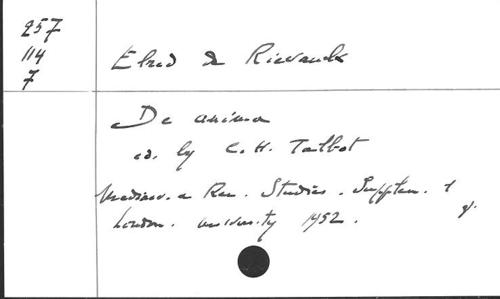 257
114
7
Elred de Rievaulx
De anima
ed. by C.H. Talbot
Mediaev. a Ren. Studies. Supplem. 1
London. university 1952.